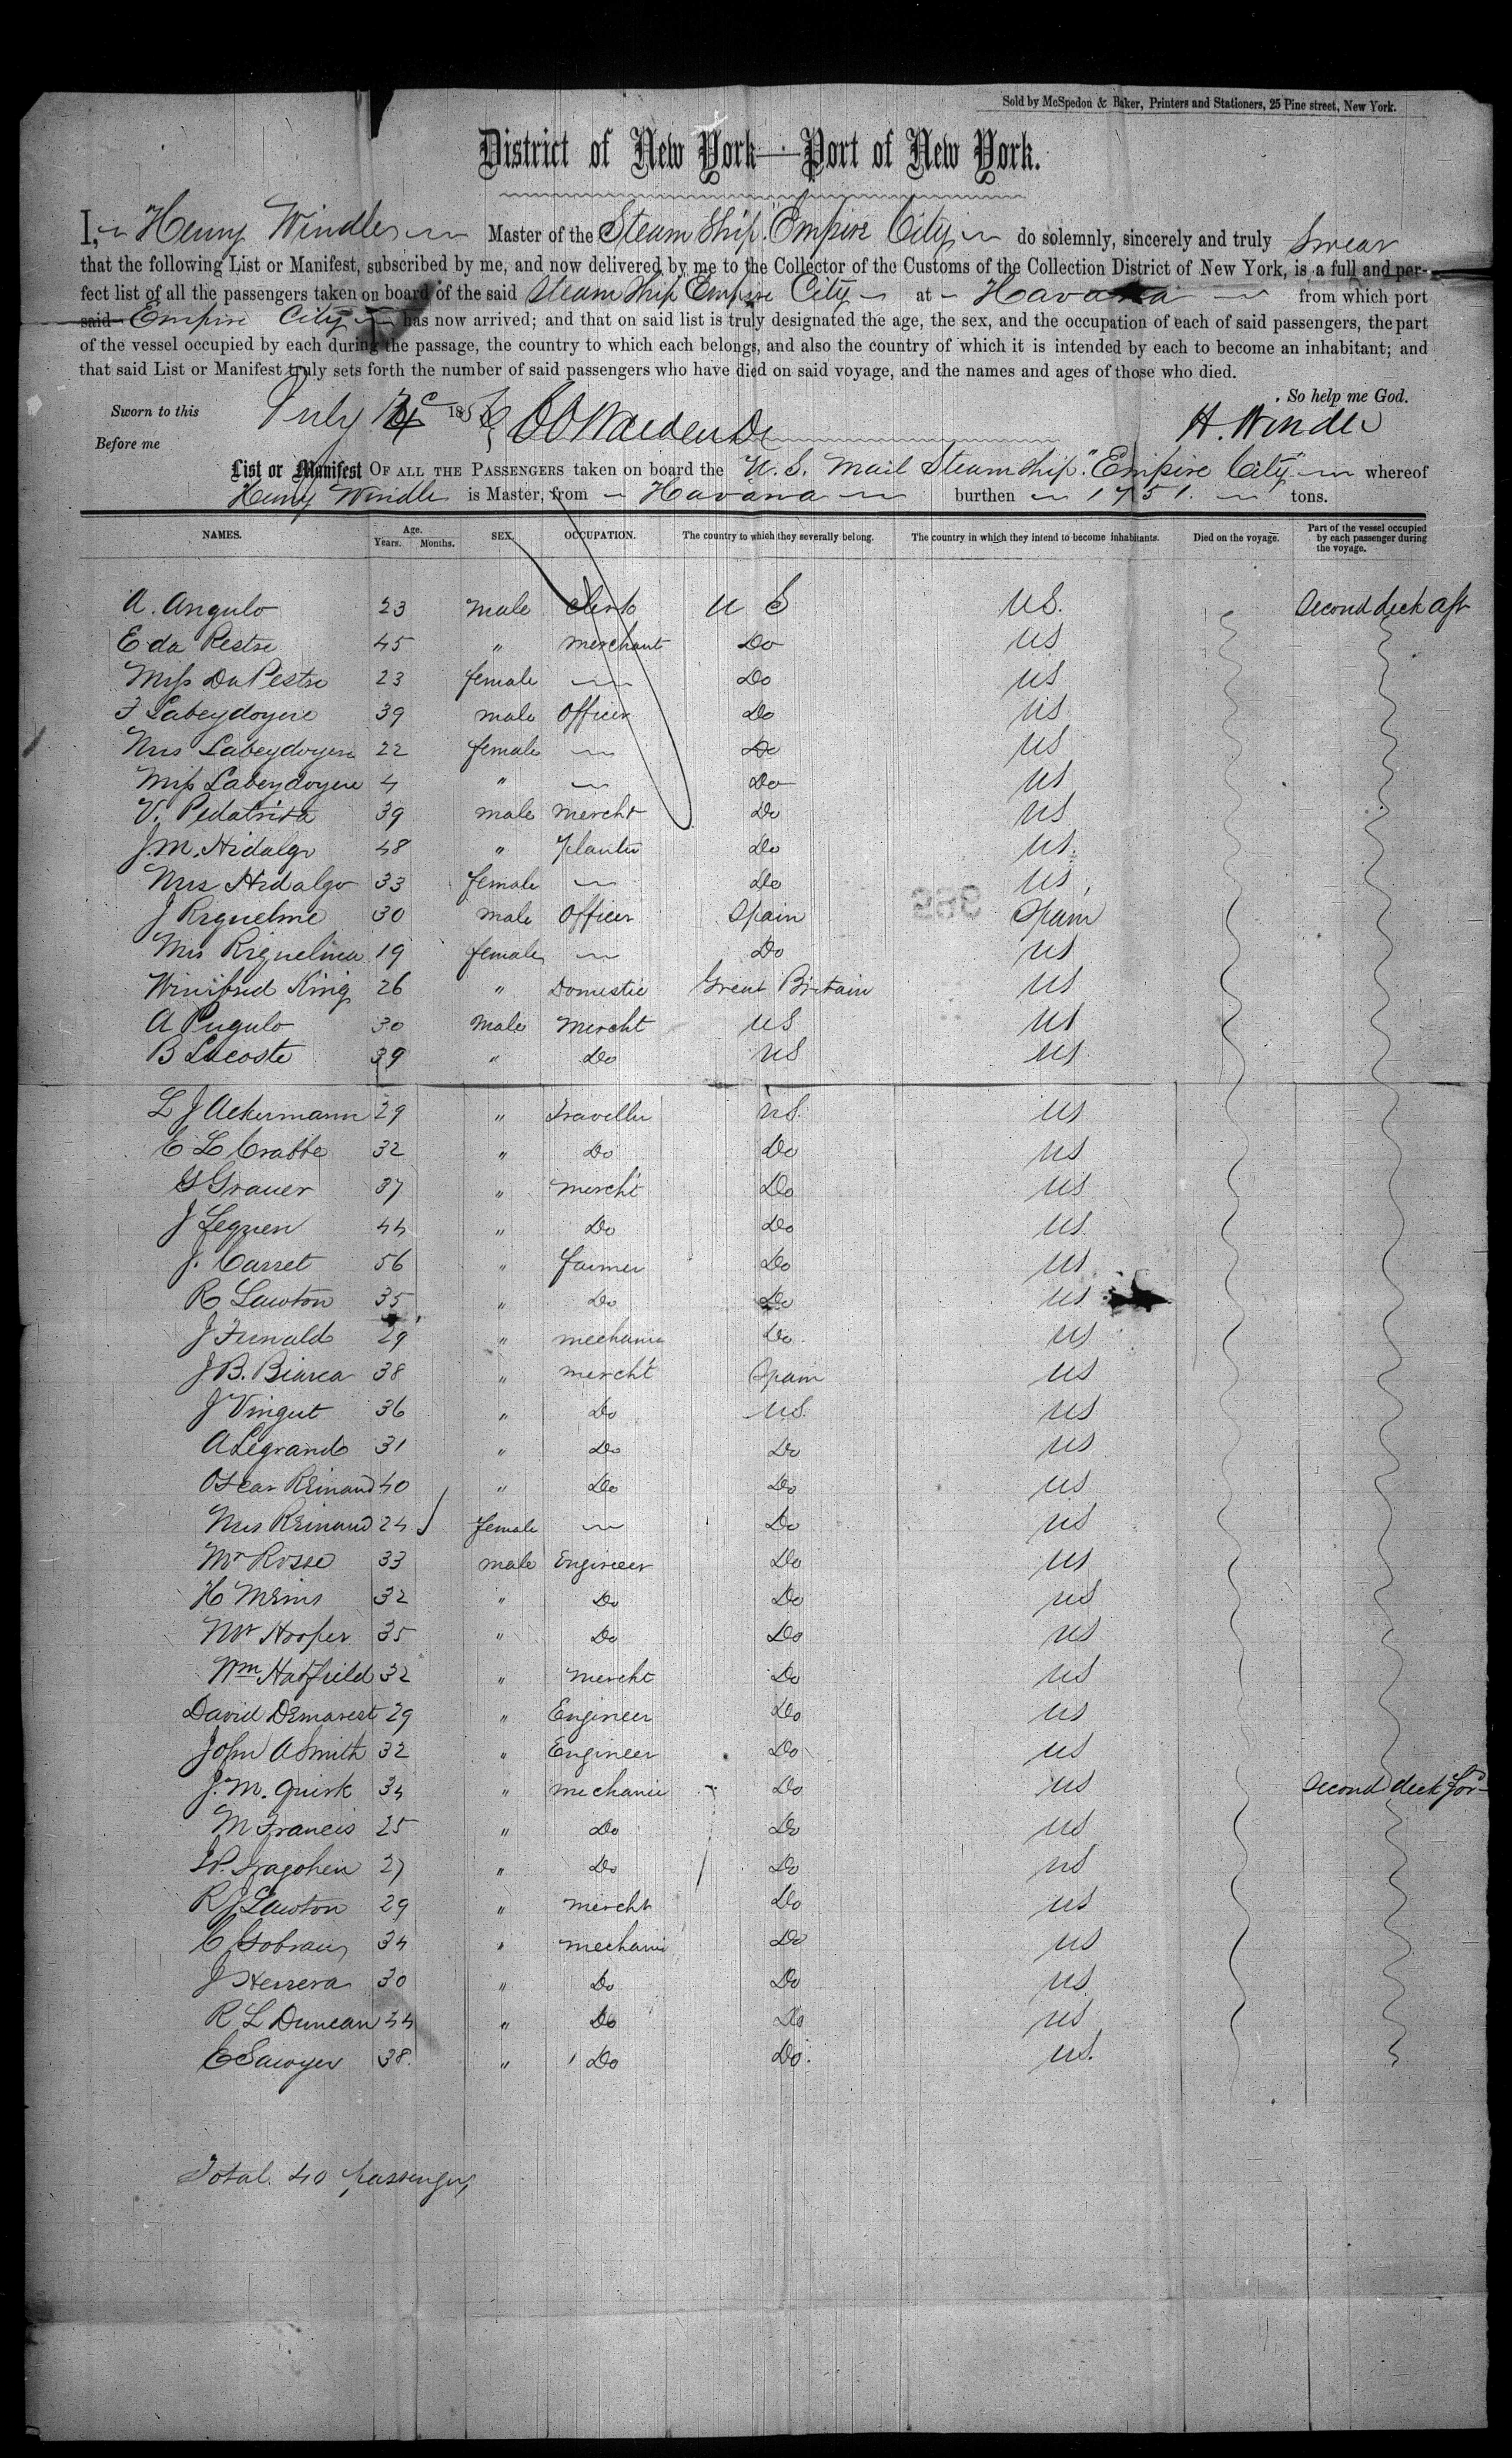 Sold by McSpedon & Baker, Printers and Stationers, 25 Pine street, New York.
District of New York—Port of New York.
I, Henry Windle Master of the Steam Ship "Empire City" do solemnly, sincerely and truly Swear
that the following List or Manifest, subscribed by me, and now delivered by me to the Collector of the Customs of the Collection District of New York, is a full and per-
fect list of all the passengers taken on board of the said Steam Ship Empire City at Havana from which port
said Empire City has now arrived; and that on said list is truly designated the age, the sex, and the occupation of each of said passengers, the part
of the vessel occupied by each during the passage, the country to which each belongs, and also the country of which it is intended by each to become an inhabitant; and
that said List or Manifest truly sets forth the number of said passengers who have died on said voyage, and the names and ages of those who died.
So help me God.
Sworn to this July 185
Before me H. Windle
List or Manifest OF ALL THE PASSENGERS taken on board the U.S. Mail Steam Ship "Empire City" whereof
Henry Windle is Master, from Havana burthen 1751 tons.
NAMES. Age. Years. Months. SEX. OCCUPATION. The country to which they severally belong. The country in which they intend to become inhabitants. Died on the voyage. Part of the vessel occupied by each passenger during the voyage.
A. Angulo 23 male Clerk U S US. Second deck aft
E da Pestre 45 " merchant Do US
Miss Da Pestre 23 female Do US
F Labeydoyere 39 male Officer Do US
Mrs Labeydoyere 22 female Do US
Miss Labeydoyere 4 " Do US
V. 39 male mercht Do US
J. M. Hidalgo 48 " Planter Do US.
Mrs Hidalgo 33 female Do US,
J Riquelme 30 male Officer Spain Spain
Mrs Riquelme 19 female Do US
Winifred King 26 " Domestic Great Britain US
A Pugulo 30 male Mercht US US
B Lacoste 39 " Do US US
L J Ackermann 29 " Traveller US. US
E L Crabbe 32 " Do Do US
G Grauer 37 " mercht Do US
J Lequen 44 " Do Do US.
J. Carret 56 " farmer Do US
R Lawton 35 " Do Do US
J 29 " mechanic Do. US
J B. Biarca 38 " mercht Spain US
J Vingut 36 " Do US. US
A Legrand 31 " Do Do US
Oscar Reinaud 40 " Do Do US
Mrs Reinaud 24 female Do US
Mr Rosse 33 male Engineer Do US
H Meins 32 " Do Do US
Mr Hooper 35 " Do Do US
Wm Hatfield 32 " mercht Do US
David Demarest 29 " Engineer Do US
John A Smith 32 " Engineer Do US
J. M. Quirk 34 " mechanic Do US Second deck for
M Francis 25 " Do Do US
27 " Do Do US
R J Lawton 29 " mercht Do US
C 34 " mechani Do US
J Herrera 30 " Do Do US
R L Duncan 44 " Do Do US
E Sawyer 38. " Do Do. US.
Total 40 passengers